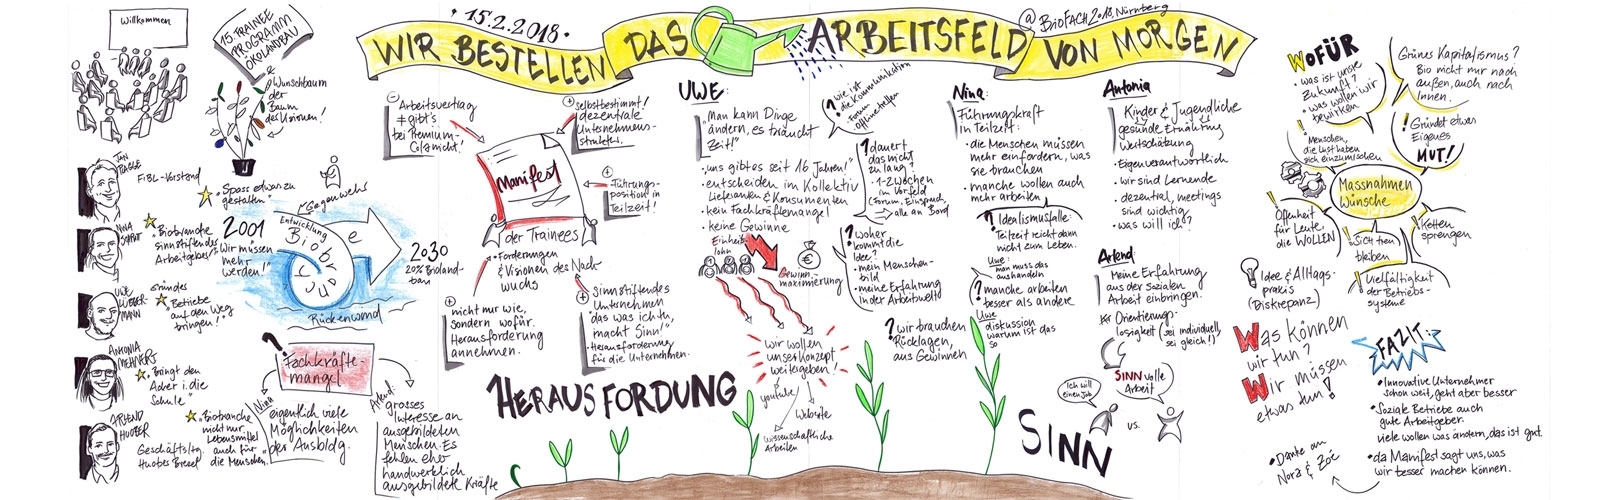 Willkommen
15. TRAINEE
PROGRAMM
ÖKOLANDBAU
&
Wunschbaum
der
Baum
der Visionen!
• 15.2.2018 •
WIR BESTELLEN DAS ARBEITSFELD VON MORGEN
@ BIOFACH 2018, Nürnberg
JAN
PLAGGE
FiBL-Vorstand
Spass etwas zu
gestalten"
NINA
Biobranche
sinnstiftendes
Arbeitgeber"
UWE
LUEBER-
MANN
Gründes
Betriebe
auf den Weg
bringen!"
ANTONIA
MEHNERT
Bringt den
Acker i. die
Schule"
AREND
HUOBER
Geschäftsltg.
Huober Brezel
Biobranche
nicht nur
Lebensmittel
auch für
die Menschen."
Gegenwehr
2001
"Wir müssen
mehr
werden!"
Entwicklung
Biobranche
2030
20% Bioland-
bau
Rückenwind
?
Fachkräfte-
mangel
Nina
eigentlich viele
Möglichkeiten
der Ausbldg.
Arend:
grosses
Interesse an
ausgebildeten
Menschen. Es
fehlen eher
handwerklich
ausgebildete Kräfte
Arbeitsvertrag
≠ gibt's
bei Premium-
Cola nicht!
+
selbstbestimmt!
dezentrale
Unternehmens-
struktur.
Manifest
der Trainees
• Forderungen
& Visionen des Nach-
wuchs
+
Führungs-
position in
Teilzeit!
+
nicht nur wie,
sondern wofür.
Herausforderung
annehmen.
+
Sinnstiftendes
Unternehmen
"das was ich tu,
macht Sinn!"
• Herausforderung
für die Unternehmen.
HERAUSFORDUNG
UWE:
"Man kann Dinge
ändern, es braucht
Zeit!"
• uns gibt es seit 16 Jahren!"
• entscheiden im Kollektiv
Lieferanten & Konsumenten
• kein Fachkräftemangel
• keine Gewinne
Einheits
lohn
€
Gewinn-
maximierung
wir wollen
unser Konzept
weitergeben!
youtube
Website
wissenschaftliche
Arbeiten
? wie ist
die Kommunikation
- Forum
offline treffen
? dauert
das nicht
zu lang?
• 1-2 Wochen
im Vorfeld
(Forum, Einspruch,
alle an Bord)
? woher
kommt die
Idee?
• mein Menschen-
bild
• meine Erfahrung
in der Arbeitswelt
? wir brauchen
Rücklagen,
aus Gewinnen
Nina:
Führungskraft
in Teilzeit:
• die Menschen müssen
mehr einfordern, was
sie brauchen
• manche wollen auch
mehr arbeiten
? Idealismusfalle:
Teilzeit reicht dann
nicht zum Leben.
Uwe:
man muss das
aushandeln
? manche arbeiten
besser als andere
Uwe
diskussion
warum ist das
so
Antonia
Kinder & Jugendliche
gesunde Ernährung
Wertschätzung
• Eigenverantwortlich
• wir sind Lernende
• dezentral, meetings
sind wichtig
• was will ich?
Arend:
Meine Erfahrung
aus der sozialen
Arbeit einbringen.
Orientierungs-
losigkeit (sei individuell,
sei gleich!)
SINNvolle
Arbeit
Ich will
einen Job
vs.
SINN
WOFÜR
• was ist unsre
Zukunft?
• was wollen wir
bewirken
Grünes Kapitalismus?
Bio nicht nur nach
außen, auch nach
Innen.
! Menschen,
die Lust haben
sich einzumischen
! Gründet etwas
Eigenes
MUT!
Massnahmen
Wünsche
! Offenheit
für Leute,
die WOLLEN
! sich treu
bleiben
! Ketten
sprengen
! Vielfältigkeit
der Betriebs-
systeme
Idee & Alltags-
praxis
(Diskrepanz)
Was können
wir tun?
Wir müssen
etwas tun!
• Danke an
Nora & Zoë
FAZIT:
• Innovative Unternehmer
schon weit, geht aber besser
• Soziale Betriebe auch
gute Arbeitgeber.
viele wollen was ändern, das ist gut.
• da Manifest sagt uns, was
wir besser machen können.